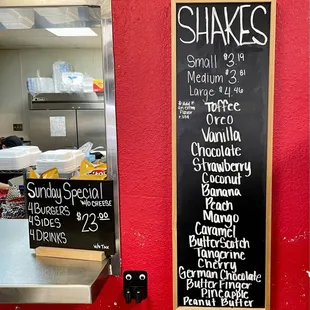 SHAKES
Small $3.19
Medium $3.81
Large $4.46
Toffee
Oreo
Vanilla
Chocolate
Strawberry
Coconut
Banana
Peach
Mango
Caramel
ButterScotch
Tangerine
Cherry
German Chocolate
Butter Finger
Pineapple
Peanut Butter
SUNDAY SPECIAL
W/O CHEESE
4 BURGERS
4 SIDES
4 DRINKS
$23.